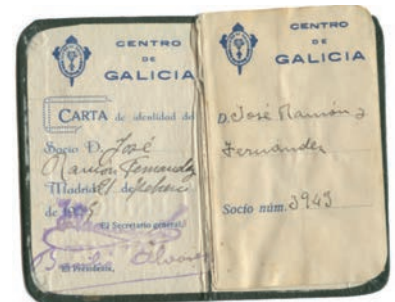 CENTRO
DE
GALICIA
CARTA de identidad del
Socio D. José
Ramón Fernandez
Madrid de febrero
de
El Secretario general,
El Presidente,
CENTRO
DE
GALICIA
D. José Ramón
Fernandez
Socio núm. 3943